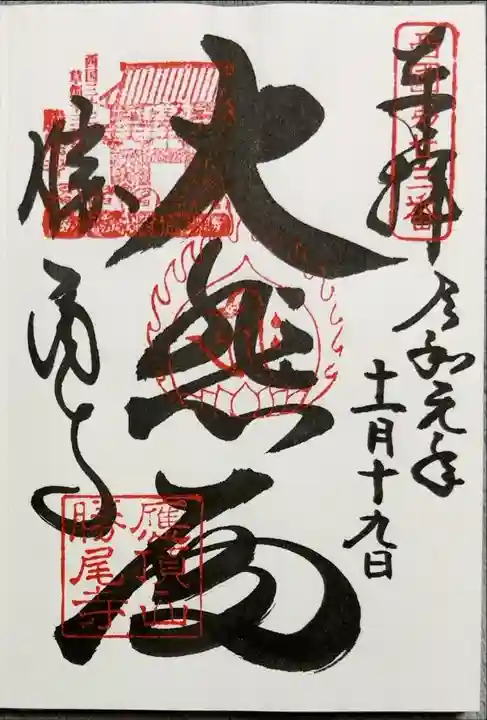 奉拝
西國第廿三番
令和元年
十一月十九日
大悲殿
勝尾寺
西国三
草創
應頂山
勝尾寺